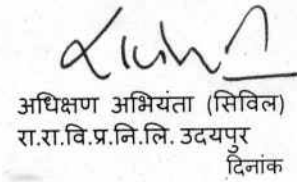 अधिक्षण अभियंता (सिविल)
रा.रा.वि.प्र.नि.लि. उदयपुर
दिनांक